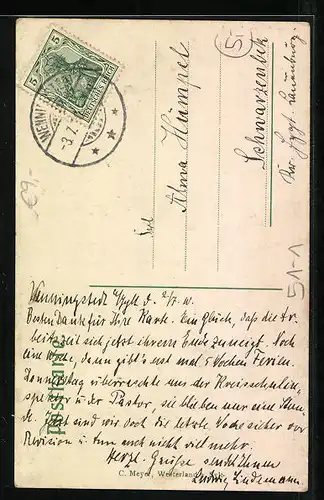 5
5
DEUTSCHES REICH
WENNINGSTEDT
-3.7.
5.-
Frl.
Alma Hümpel
Schwarzenbek
Bez. Hzgt. Lauenburg.
€9.-
51-1
Postkarte
Wenningstedt a/Sylt d. 2/7. 10.
Besten Dank für Ihre Karte. Ein Glück, daß die Ar-
beitszeit sich jetzt ihrem Ende zuneigt. Noch
eine Woche, dann gibt's erst mal 5 Wochen Ferien.
Donnerstag überraschte uns der Kreisschulin-
spektor u. der Pastor, sie blieben nur eine Stun-
de. Jetzt sind wir doch die letzte Woche sicher vor
Revision u. tun auch nicht viel mehr.
Herzl. Grüße sendet Ihnen
Ludwig Lindemann
C. Meyer, Westerland-Sylt.